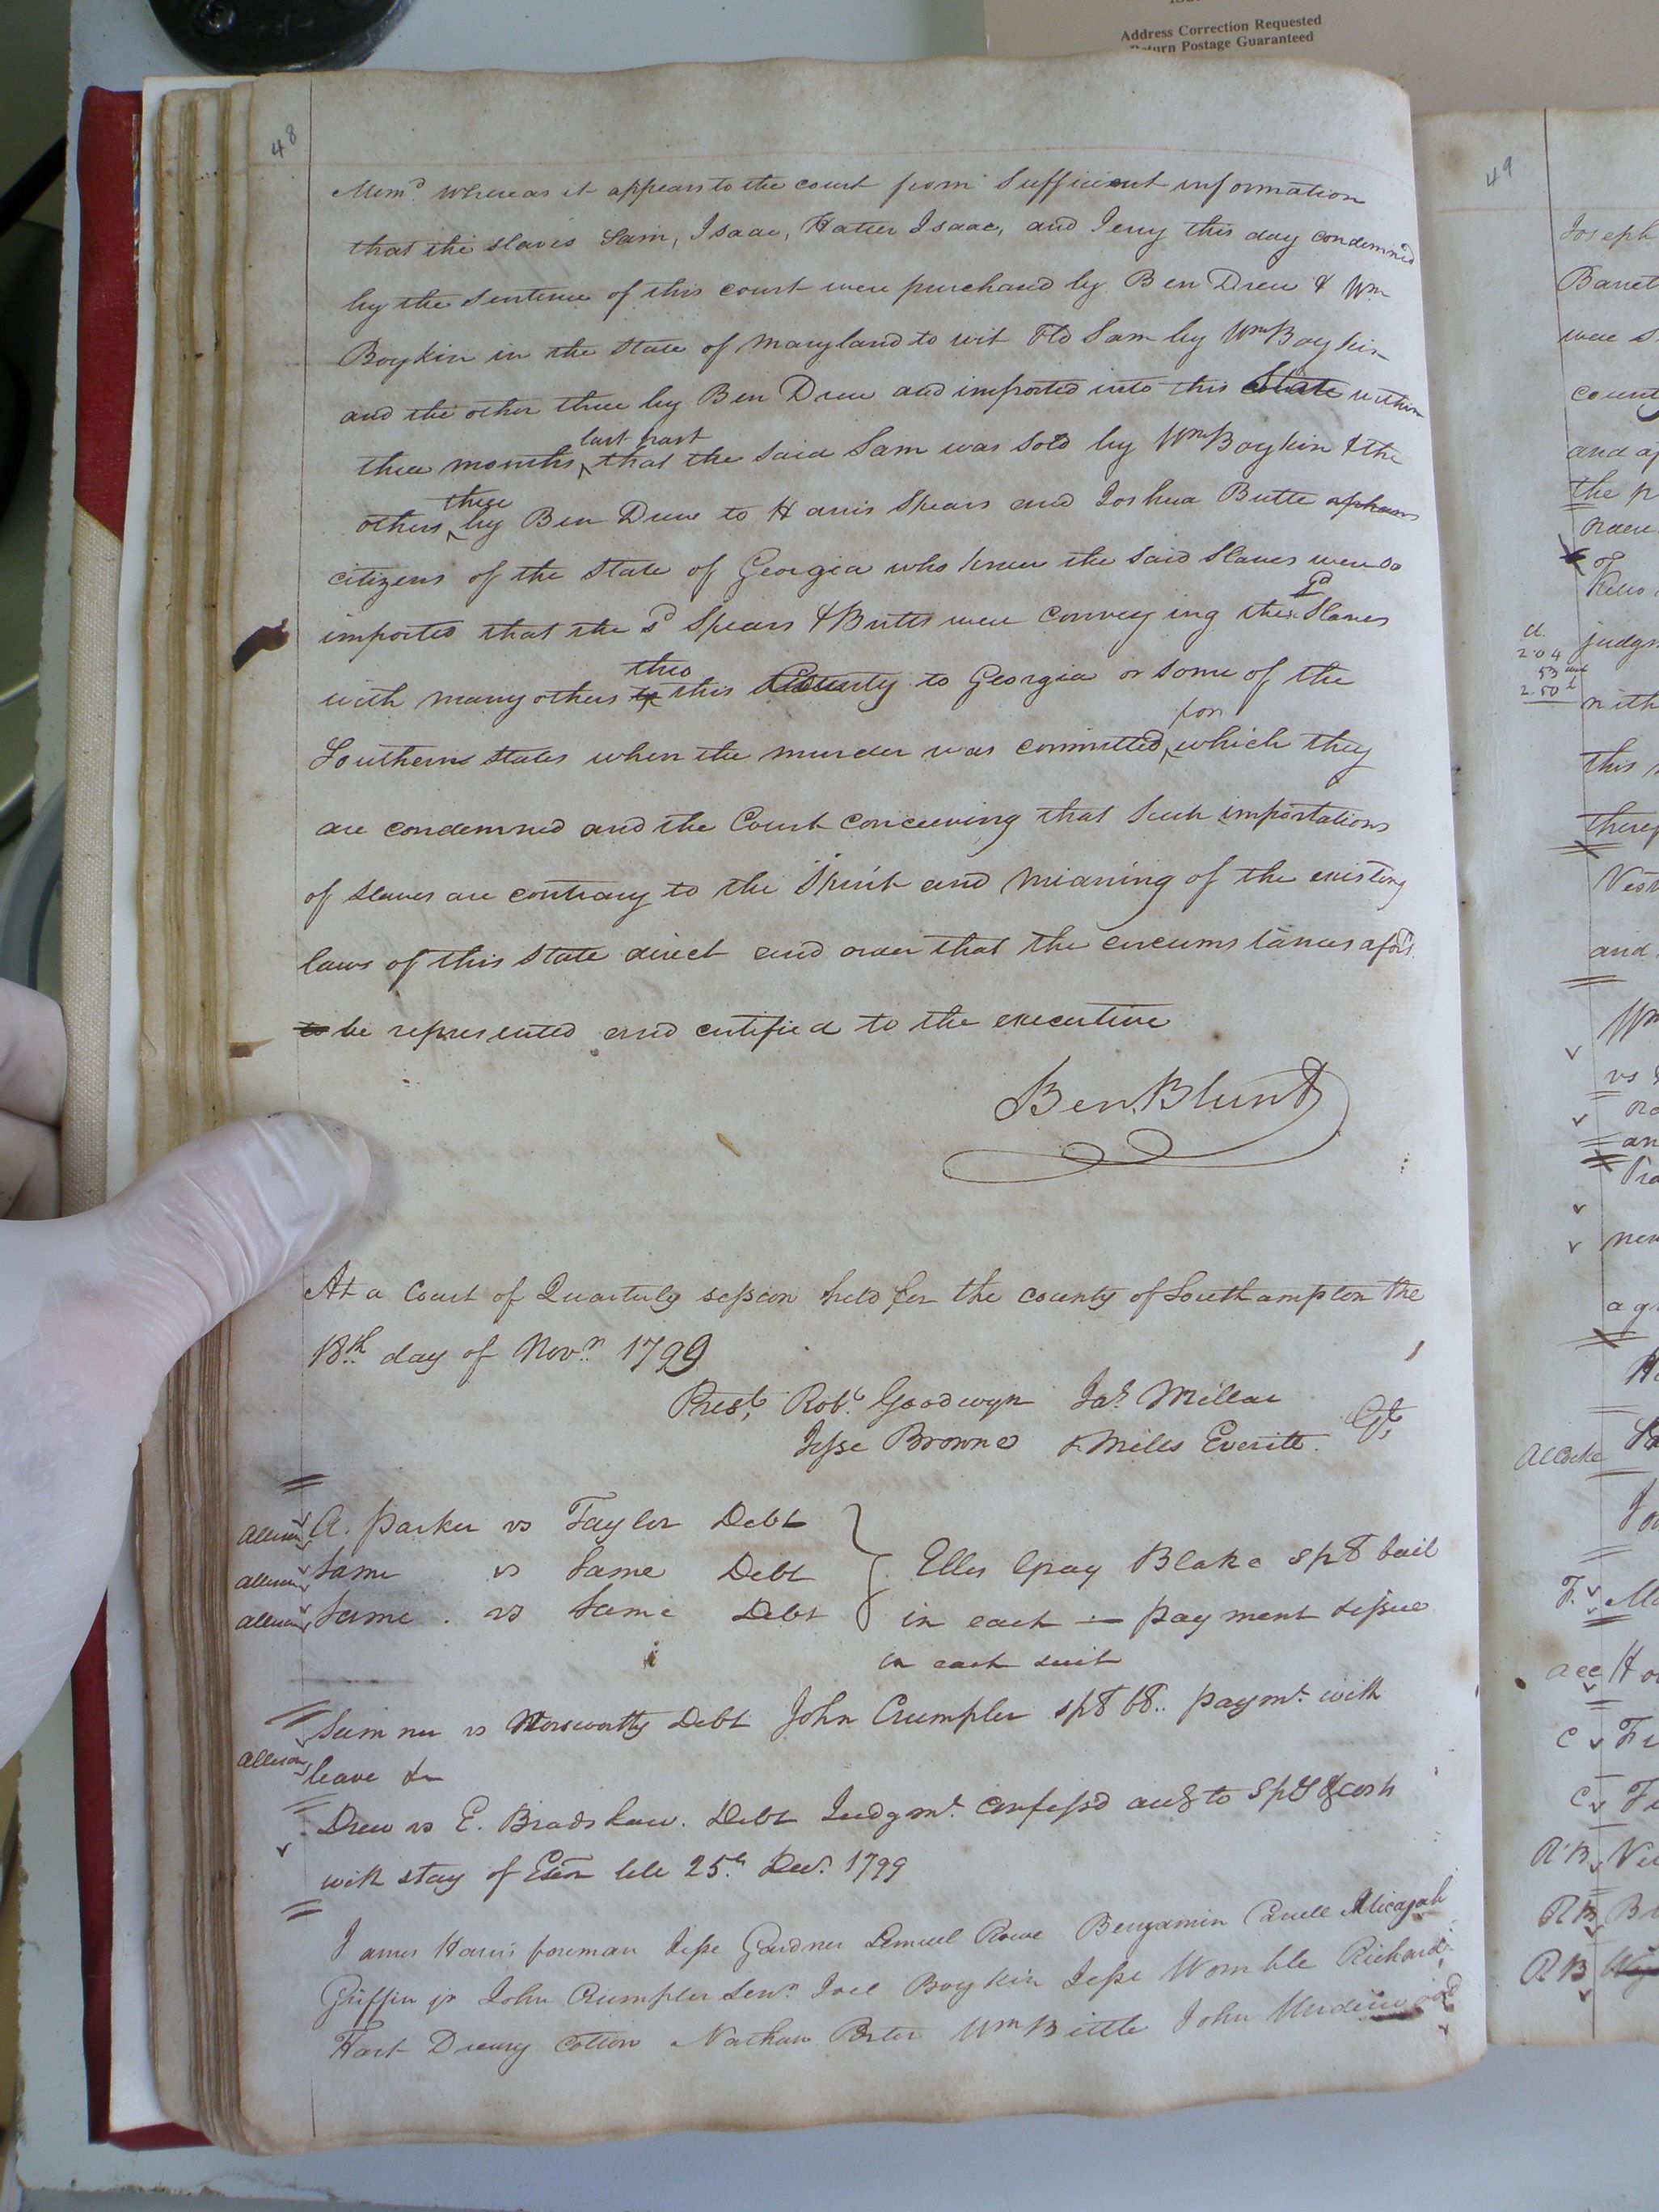 Address Correction Requested
Return Postage Guaranteed
48
Memd. Whereas it appears to the court from Sufficient information
that the slaves Sam, Isaac, Hatter Isaac, and Jerry this day condemned
by the sentence of this court were purchased by Ben Drew & Wm
Boykin in the State of Maryland to wit Old Sam by Wm Boykin
and the other three by Ben Drew and imported into this State within
last past
three months that the said Sam was Sold by Wm Boykin & the
three
others by Ben Drew to Harris Spears and Joshua Butts
citizens of the State of Georgia who knew the said Slaves were so
sd
imported that the sd Spears & Butts were conveying these Slaves
thro
with many others this County to Georgia or some of the
for
Southern States when the murder was committed which they
are condemned and the Court conceiving that Such importations
of slaves are contrary to the Spirit and Meaning of the existing
laws of this State direct and order that the circumstances aforsd.
to be represented and certified to the executive
Ben. Blunt
At a Court of Quarterly session held for the county of Southampton the
18th day of Novr. 1799
Prest. Robt. Goodwyn Jas. Millar
Gt.
Jesse Browne & Miles Everitt.
A. Parker vs Taylor Debt
Same vs Same Debt
Same . vs Same Debt
Blake spl bail
in each — payment & issue
in each suit
Sumner vs Norsworthy Debt John Crumpler spl bl.. paymt. with
leave &c
Drew vs E. Bradshaw. Debt Judgmt. confessd accg to Spl & costs
with stay of Exon till 25th Decr. 1799
James Harris foreman Jesse Gardner Lemuel Rowe Benjamin Carrell Micajah
Griffin jr John Crumpler Senr. Joel Boykin Jesse Womble Richard
Hart Drewry Cotton Nathan Porter Wm Bittle John Underwood
49
Joseph
Barret
were
county
and
the
of
2.04
53
2.50
with
this
Vest
and
Wm
vs
an